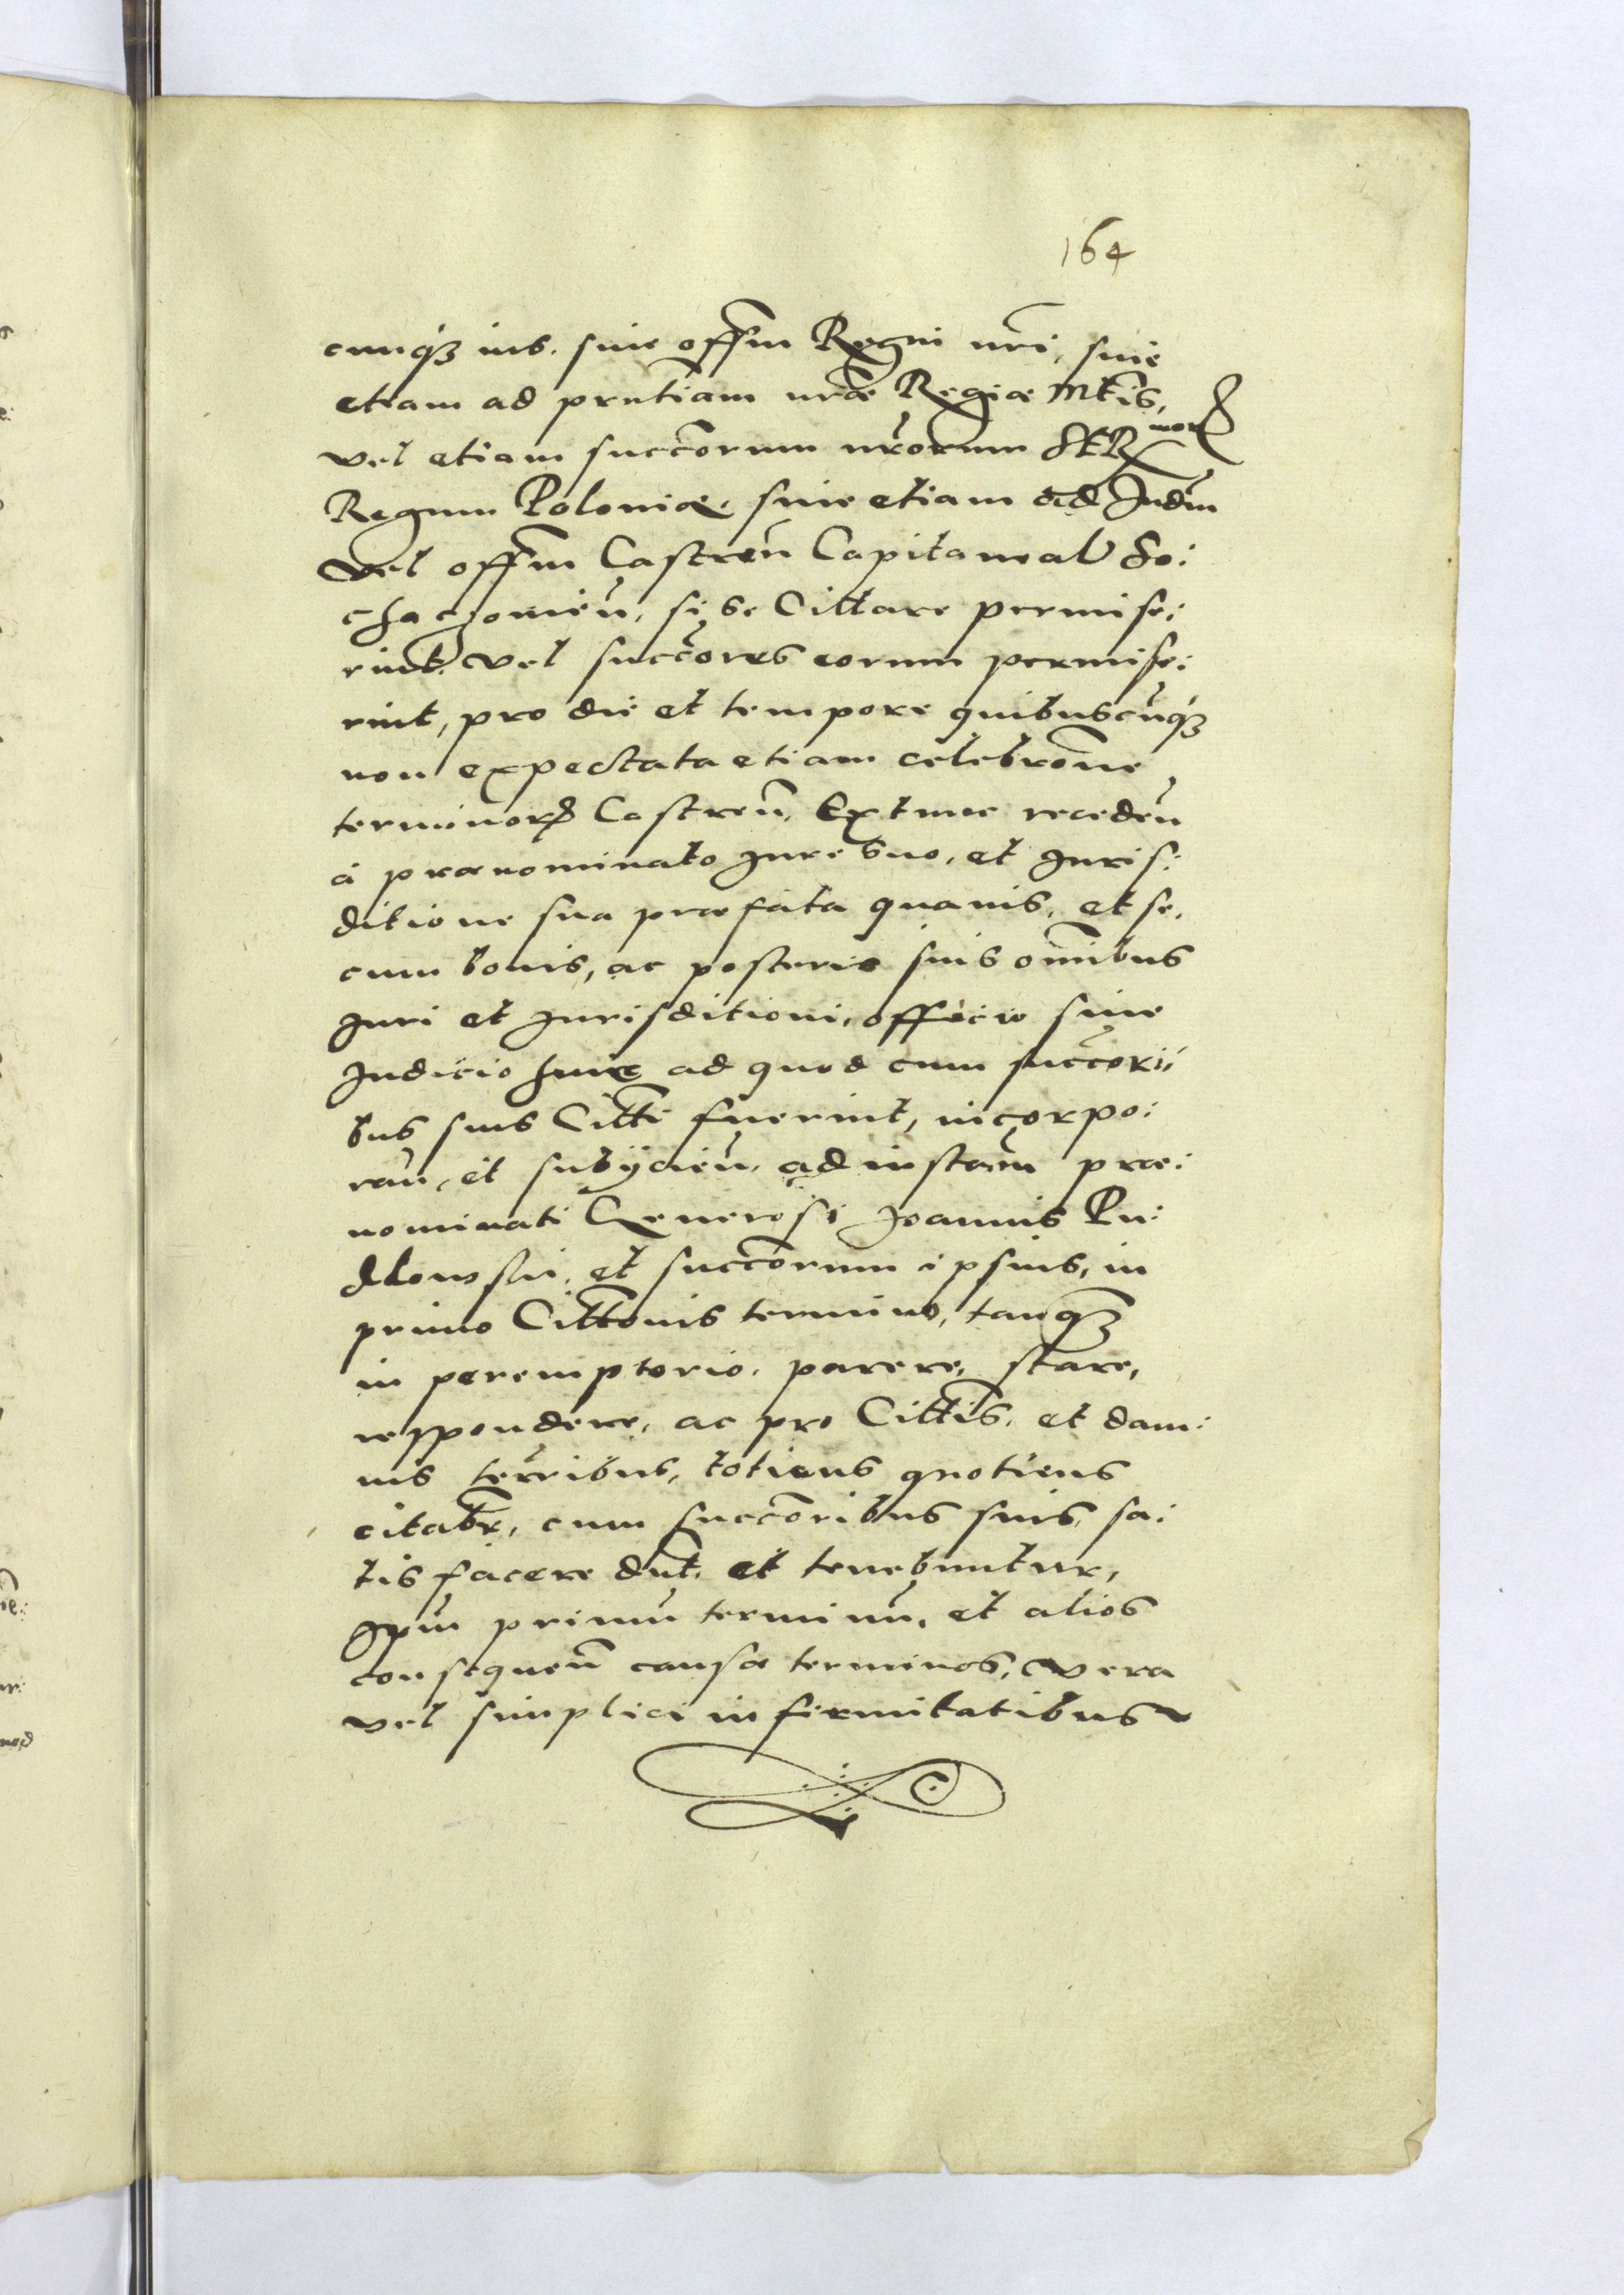 164
cunqꝫ ius. siue offm Regni nri, siue
etiam ad prntiam nræ Regiæ Mtis,
vel etiam succorum nrorum SER morꝝ
Regum Poloniæ, siue etiam ad Judm
vel offm Castren Capitaneal So:
chaczouien, si se Cittare permise:
rint. vel succores eorum permise:
rint, pro die et tempore quibuscunqꝫ
non expectata etiam celebrone
terminorꝝ Castren, Extunc receden
à prænominato Jure suo, et Juris:
ditione sua præfata quauis, et se,
cum bonis, ac posteris suis omnibus
Juri et Jurisditioni, officio siue
Judicio huic ad quod cum succori:
bus suis Citti fuerint, incorpo:
ran, et subÿcien, ad instam præ:
nominati Generosi Joannis Pu:
dlowski, et succorum ipsius, in
primo Cittonis termino, tanqꝫ
in peremptorio, parere, stare,
respondere, ac pro Cittis, et dam:
nis terribus, totiens quotiens
citabr, cum succoribus suis sa:
tis facere dnt, et tenebuntur,
Ipm primu terminu, et alios
consequen causæ terminos, vera
vel simplici infirmitatibus